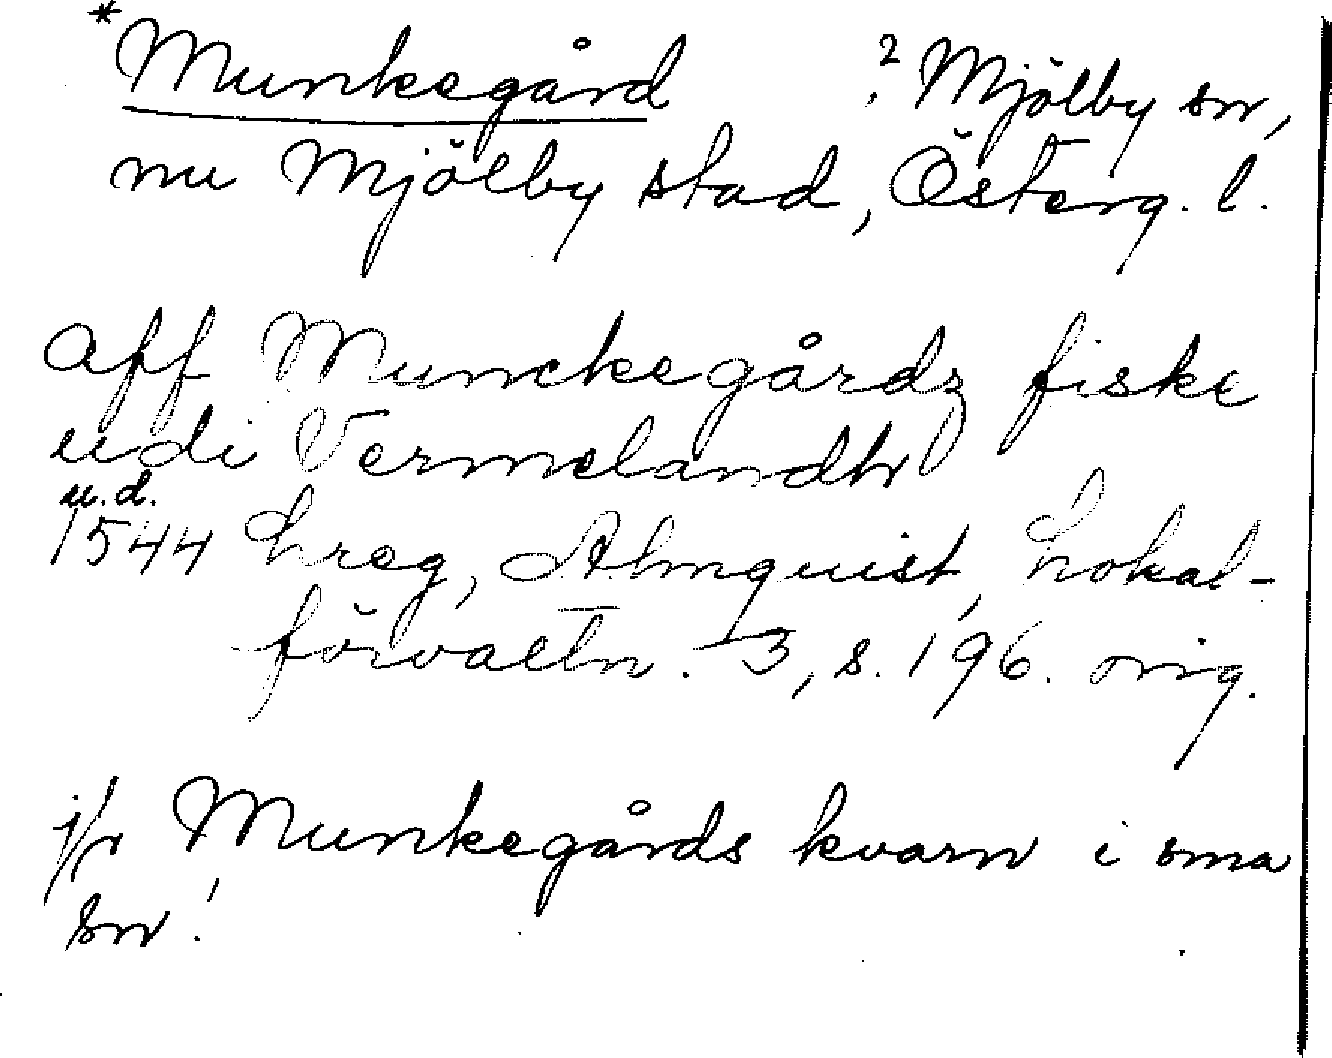 *Munkegård ? Mjölby sn,
nu Mjölby stad, Österg. l.
aff Munckegårdz fiske
udi Vermelandh
u.d.
1544 Lreg, Almquist, Lokal-
förvaltn. 3, s. 196. orig.
jfr Munkegårds kvarn i sma
sn!